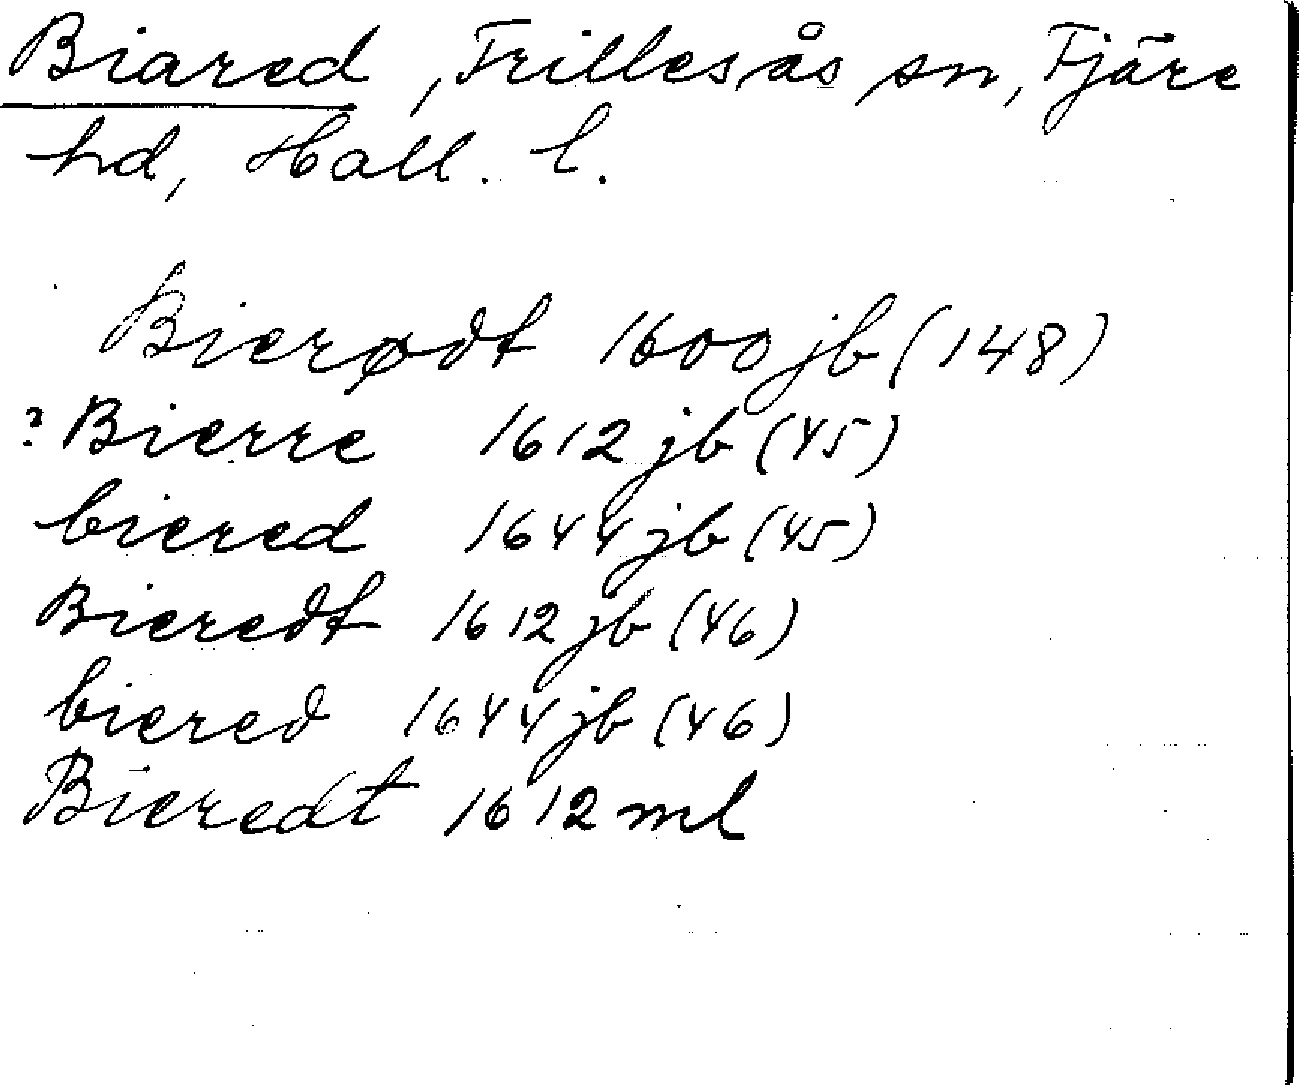 Biared, Frillesås sn, Fjäre
hd, Hall. l.
Bierødt 1600 jb (148)
? Bierre 1612 jb (45)
biered 1644 jb (45)
Bieredt 1612 jb (46)
biered 1644 jb (46)
Bieredt 1612 ml